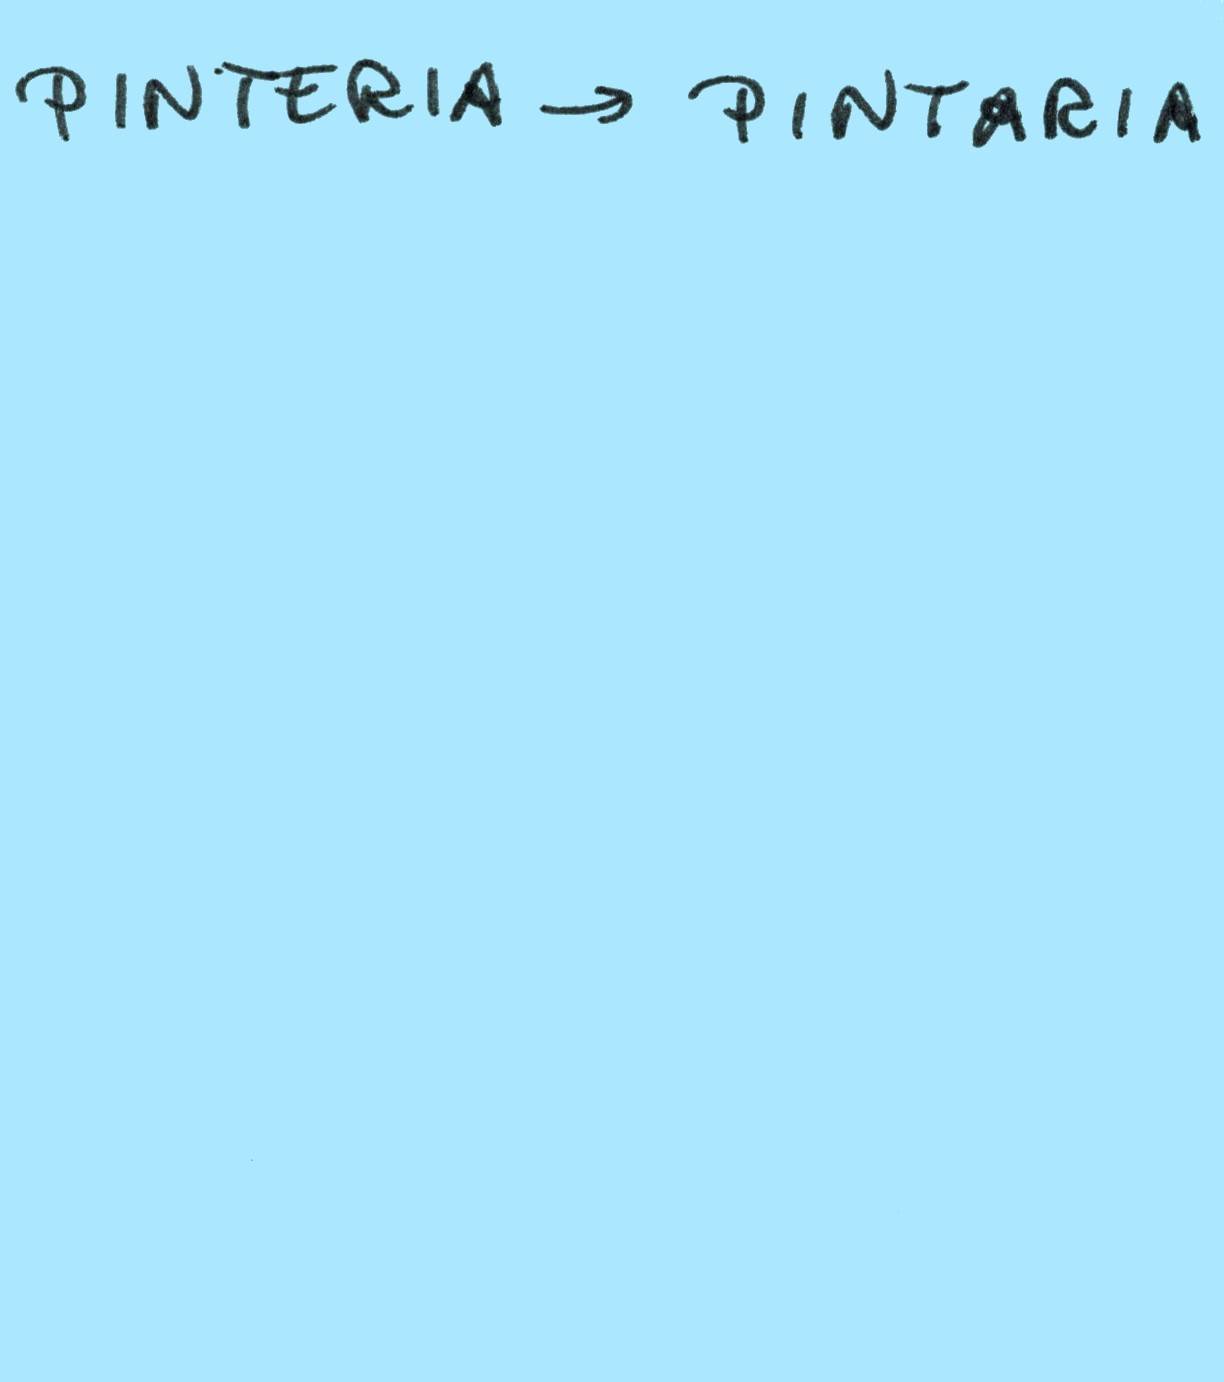 PINTERIA → PINTARIA